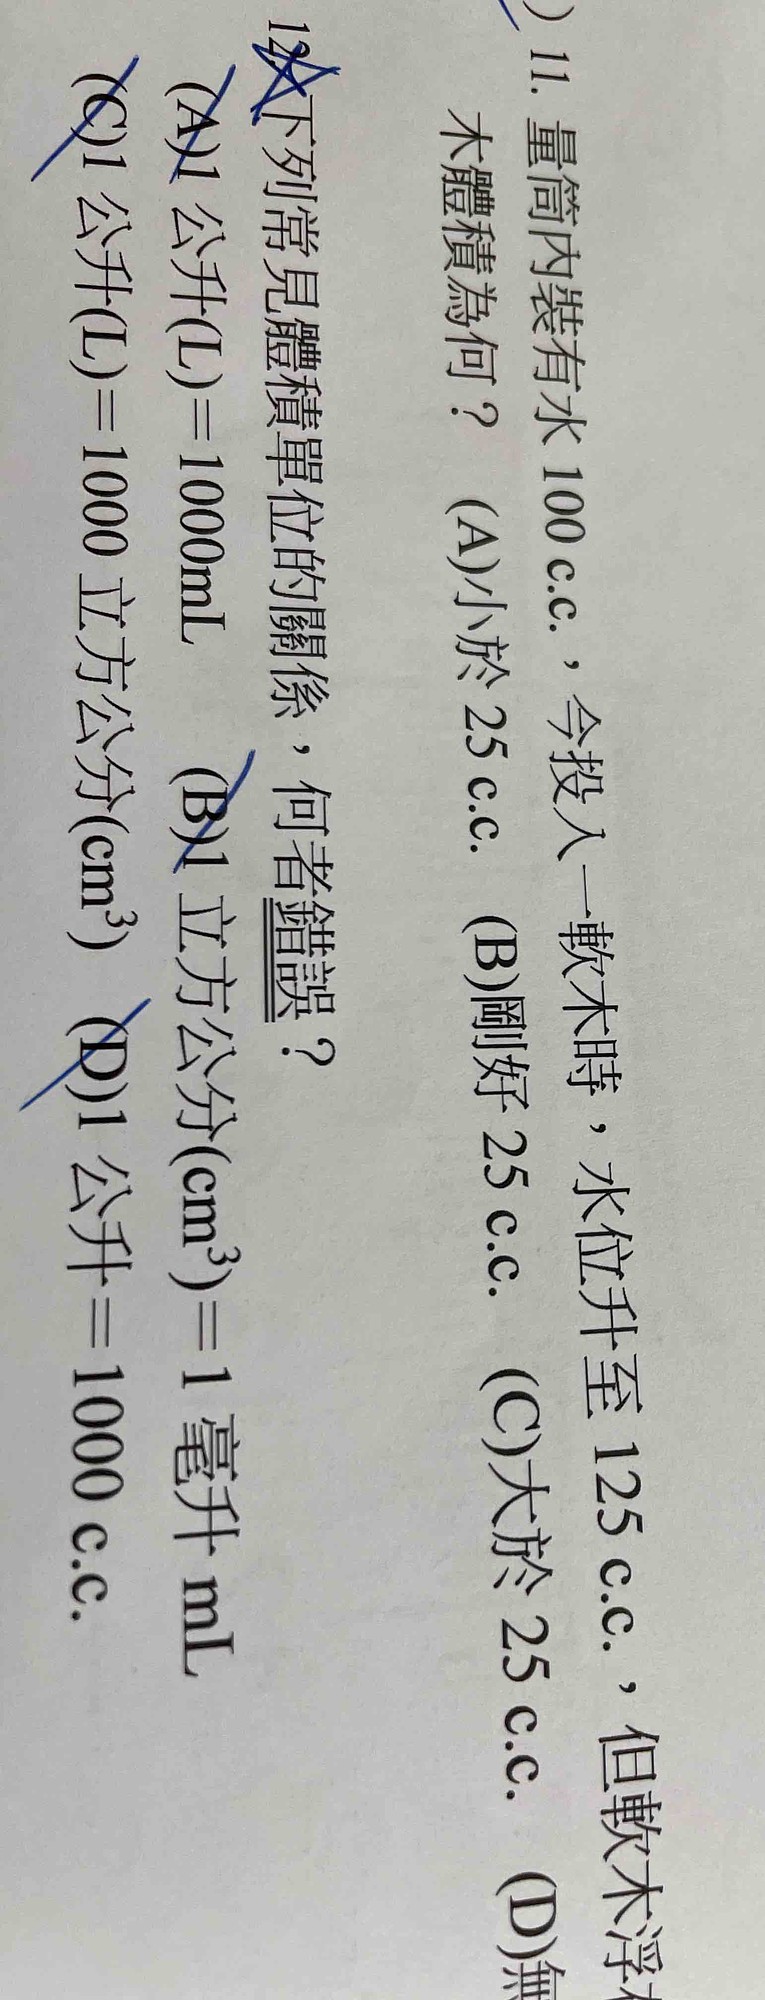 ) 11. 量筒內裝有水 100 c.c.，今投入一軟木時，水位升至 125 c.c.，但軟木浮
木體積為何？ (A)小於 25 c.c. (B)剛好 25 c.c. (C)大於 25 c.c. (D)無
12. 下列常見體積單位的關係，何者錯誤？
(A)1 公升(L)＝1000mL (B)1 立方公分(cm³)＝1 毫升 mL
(C)1 公升(L)＝1000 立方公分(cm³) (D)1 公升＝1000 c.c.